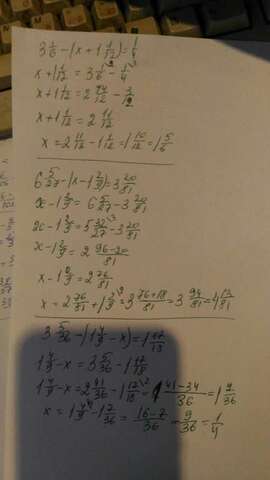 3 1/6 - (x + 1 1/12) = 1/4
x + 1 1/12 = 3 1/6 - 1/4
x + 1 1/12 = 2 14/12 - 3/12
x + 1 1/12 = 2 11/12
x = 2 11/12 - 1 1/12 = 1 10/12 = 1 5/6
6 5/27 - (x - 1 2/9) = 3 20/81
x - 1 2/9 = 6 5/27 - 3 20/81
x - 1 2/9 = 5 32/27 - 3 20/81
x - 1 2/9 = 2 96-20/81
x - 1 2/9 = 2 76/81
x = 2 76/81 + 1 2/9 = 3 76+18/81 = 3 94/81 = 4 13/81
3 5/36 - (1 4/9 - x) = 1 17/18
1 4/9 - x = 3 5/36 - 1 17/18
1 4/9 - x = 2 41/36 - 1 17/18 = 1 41-34/36 = 1 7/36
x = 1 4/9 - 1 7/36 = 16-7/36 = 9/36 = 1/4